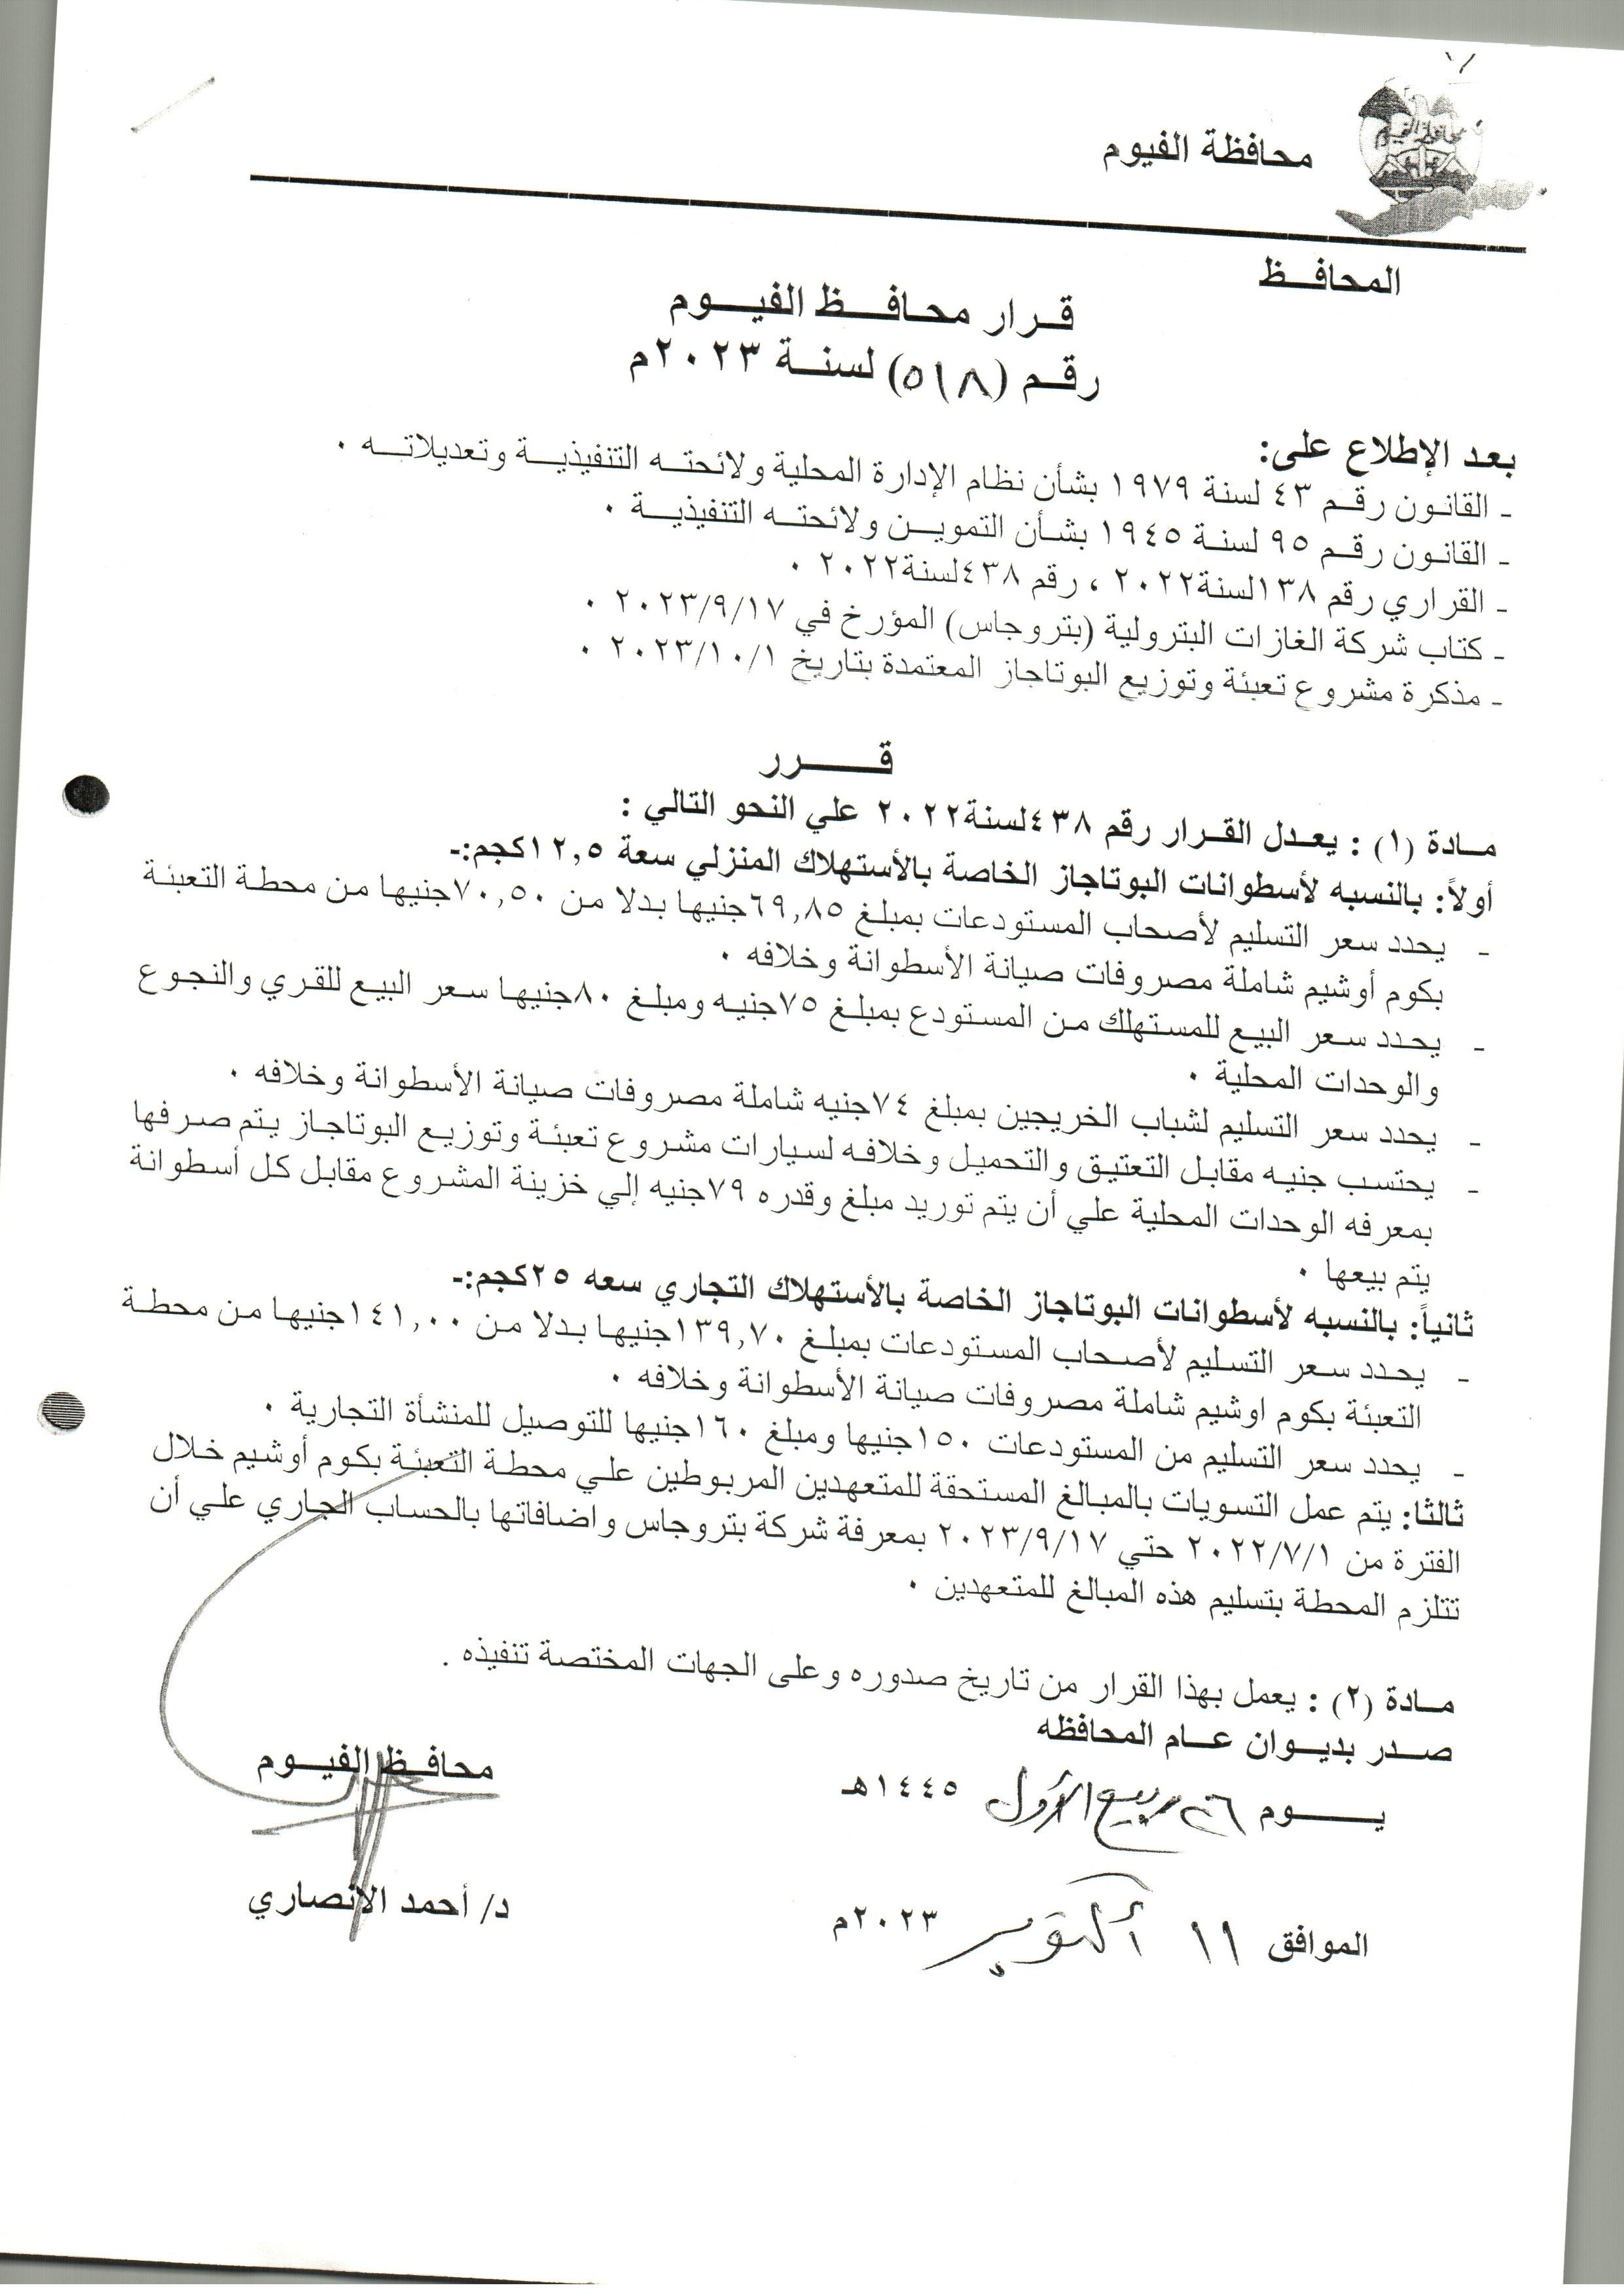 محافظة الفيوم
محافظة الفيوم
المحافـــظ
قــرار محـافــــظ الفيــــوم
رقــم (٥١٨) لسنــة ٢٠٢٣م
بعد الإطلاع على:
- القانون رقـم ٤٣ لسنة ١٩٧٩ بشأن نظام الإدارة المحلية ولائحتـه التنفيذيـــة وتعديلاتـــه ٠
- القانون رقـم ٩٥ لسنة ١٩٤٥ بشأن التمويـــن ولائحتـه التنفيذيـــة ٠
- القراري رقم ١٣٨لسنة٢٠٢٢ ، رقم ٤٣٨لسنة٢٠٢٢ ٠
- كتاب شركة الغازات البترولية (بتروجاس) المؤرخ في ٢٠٢٣/٩/١٧ ٠
- مذكرة مشروع تعبئة وتوزيع البوتاجاز المعتمدة بتاريخ ٢٠٢٣/١٠/١ ٠
قـــــــرر
مـادة (١) : يعـدل القـرار رقم ٤٣٨لسنة٢٠٢٢ علي النحو التالي :
أولاً: بالنسبه لأسطوانات البوتاجاز الخاصة بالأستهلاك المنزلي سعة ١٢,٥كجم:ـ
- يحدد سعر التسليم لأصحاب المستودعات بمبلغ ٦٩,٨٥جنيها بدلا من ٧٠,٥٠جنيها من محطة التعبئة
بكوم أوشيم شاملة مصروفات صيانة الأسطوانة وخلافه ٠
- يحدد سعر البيع للمستهلك من المستودع بمبلغ ٧٥جنيه ومبلغ ٨٠جنيها سعر البيع للقري والنجوع
والوحدات المحلية ٠
- يحدد سعر التسليم لشباب الخريجين بمبلغ ٧٤جنيه شاملة مصروفات صيانة الأسطوانة وخلافه ٠
- يحتسب جنيه مقابل التعتيق والتحميل وخلافه لسيارات مشروع تعبئة وتوزيع البوتاجاز يتم صرفها
بمعرفه الوحدات المحلية علي أن يتم توريد مبلغ وقدره ٧٩جنيه إلي خزينة المشروع مقابل كل أسطوانة
يتم بيعها ٠
ثانياً: بالنسبه لأسطوانات البوتاجاز الخاصة بالأستهلاك التجاري سعه ٢٥كجم:ـ
- يحدد سعر التسليم لأصحاب المستودعات بمبلغ ١٣٩,٧٠جنيها بدلا من ١٤١,٠٠جنيها من محطة
التعبئة بكوم اوشيم شاملة مصروفات صيانة الأسطوانة وخلافه ٠
- يحدد سعر التسليم من المستودعات ١٥٠جنيها ومبلغ ١٦٠جنيها للتوصيل للمنشأة التجارية ٠
ثالثا: يتم عمل التسويات بالمبالغ المستحقة للمتعهدين المربوطين علي محطة التعبئة بكوم أوشيم خلال
الفترة من ٢٠٢٢/٧/١ حتي ٢٠٢٣/٩/١٧ بمعرفة شركة بتروجاس واضافاتها بالحساب الجاري علي أن
تتلزم المحطة بتسليم هذه المبالغ للمتعهدين ٠
مـادة (٢) : يعمل بهذا القرار من تاريخ صدوره وعلى الجهات المختصة تنفيذه .
صـدر بديـوان عـام المحافظه
يـــــوم ٢٦ ربيع الأول ١٤٤٥هـ
الموافق ١١ أكتوبر ٢٠٢٣م
محافـظ الفيـــوم
د/ أحمد الانصاري